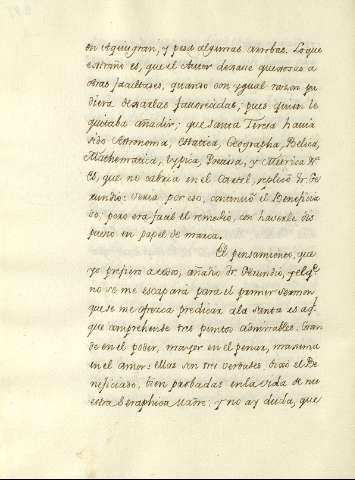 en Aquisgran, y pesa algunas arrobas. Lo que
extraño es, que el Autor dexase quexosas a
otras facultades, quando con ygual razon pu
diera dexarlas favorecidas; pues quien le
quitaba añadir; que Santa Teresa havia
sido Astronoma, Estatica, Geographa, Belica,
Mathematica, Lyrica, Precisa, y Musica &c.
Es, que no cabria en el Cartel, replicò Fr. Ge
rundio: Seria por eso, continuò el Beneficia
do; pero era facil el remedio, con haverle dis
puesto en papel de marca.
El pensamiento, que
yo prefiero a todo, añadio Fr. Gerundio, y el qe.
no se me escapará para el primer sermon
que se me ofrezca predicar a la Santa es aql.
que comprehende tres puntos admirables. Gran
de en el poder, mayor en el penar, maxima
en el amor: ellas son tres verdades, dixo el Be
neficiado, bien probadas en la vida de nu
estra Seraphica Madre; y no ay duda, que